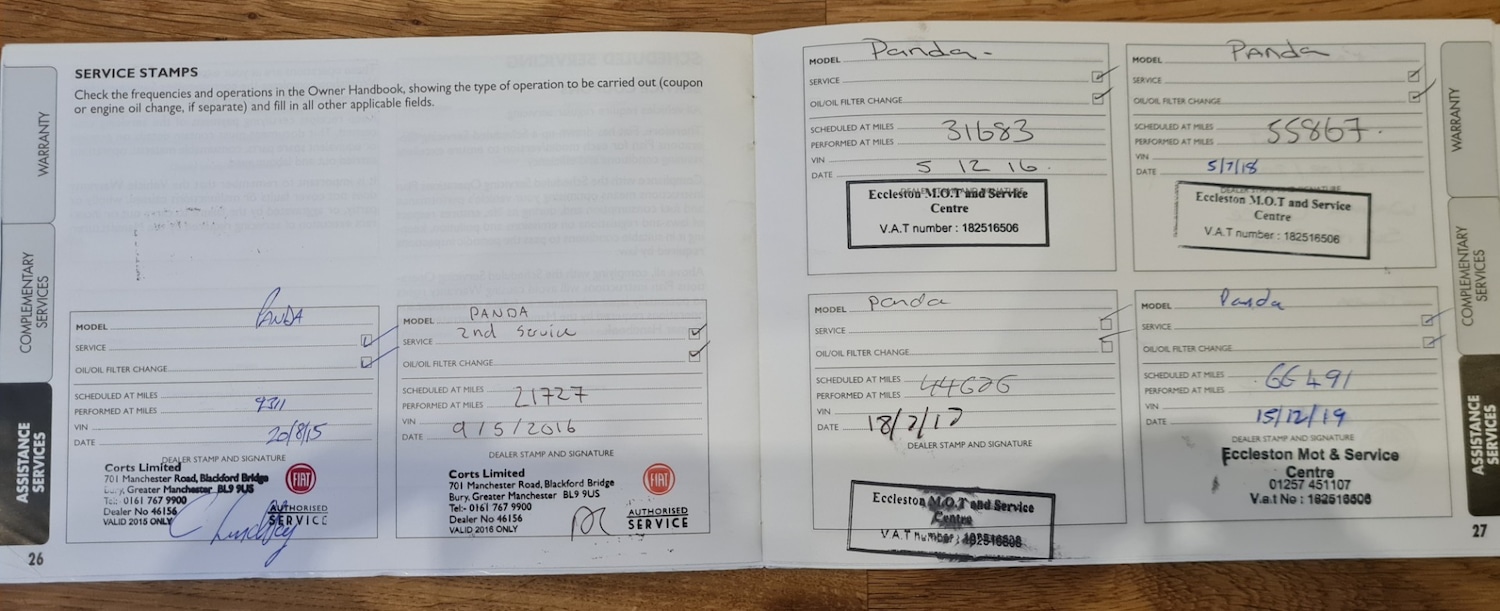 SERVICE STAMPS
Check the frequencies and operations in the Owner Handbook, showing the type of operation to be carried out (coupon
or engine oil change, if separate) and fill in all other applicable fields.
WARRANTY
COMPLEMENTARY
SERVICES
ASSISTANCE
SERVICES
MODEL PANDA
SERVICE
OIL/OIL FILTER CHANGE
SCHEDULED AT MILES
PERFORMED AT MILES 9311
VIN
DATE 20/8/15
DEALER STAMP AND SIGNATURE
Corts Limited
701 Manchester Road, Blackford Bridge
Bury, Greater Manchester BL9 9US
Tel:- 0161 767 9900
Dealer No 46156
VALID 2015 ONLY
FIAT
AUTHORISED
SERVICE
26
MODEL PANDA
SERVICE 2nd Service
OIL/OIL FILTER CHANGE
SCHEDULED AT MILES
PERFORMED AT MILES 21727
VIN
DATE 9/5/2016
DEALER STAMP AND SIGNATURE
Corts Limited
701 Manchester Road, Blackford Bridge
Bury, Greater Manchester BL9 9US
Tel:- 0161 767 9900
Dealer No 46156
VALID 2016 ONLY
FIAT
AUTHORISED
SERVICE
MODEL Panda-
SERVICE
OIL/OIL FILTER CHANGE
SCHEDULED AT MILES
PERFORMED AT MILES 31683
VIN
DATE 5 12 16.
DEALER STAMP AND SIGNATURE
Eccleston M.O.T and Service
Centre
V.A.T number : 182516506
MODEL PANDA
SERVICE
OIL/OIL FILTER CHANGE
SCHEDULED AT MILES
PERFORMED AT MILES 55867.
VIN
DATE 5/7/18
DEALER STAMP AND SIGNATURE
Eccleston M.O.T and Service
Centre
V.A.T number : 182516506
MODEL Panda
SERVICE
OIL/OIL FILTER CHANGE
SCHEDULED AT MILES
PERFORMED AT MILES
VIN
DATE
DEALER STAMP AND SIGNATURE
Eccleston M.O.T and Service
Centre
V.A.T number : 182516506
MODEL Panda
SERVICE
OIL/OIL FILTER CHANGE
SCHEDULED AT MILES
PERFORMED AT MILES 66491
VIN
DATE 15/12/19
DEALER STAMP AND SIGNATURE
Eccleston Mot & Service
Centre
01257 451107
V.a.t No : 182516506
WARRANTY
COMPLEMENTARY
SERVICES
ASSISTANCE
SERVICES
27